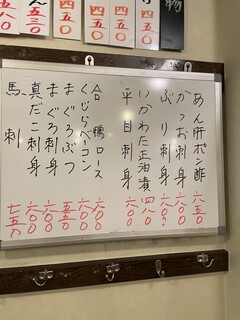 物
四五〇
四五〇
五五〇
五三〇
あん肝ポン酢 六五〇
かつお刺身 六八〇
ぶり刺身 六八〇
いかわた正油漬 四八〇
平目刺身 六八〇
合鴨ロース 六〇〇
くじらベーコン 六〇〇
まぐろぶつ 五五〇
まぐろ刺身 六〇〇
真だこ刺身 六〇〇
馬刺 七五〇